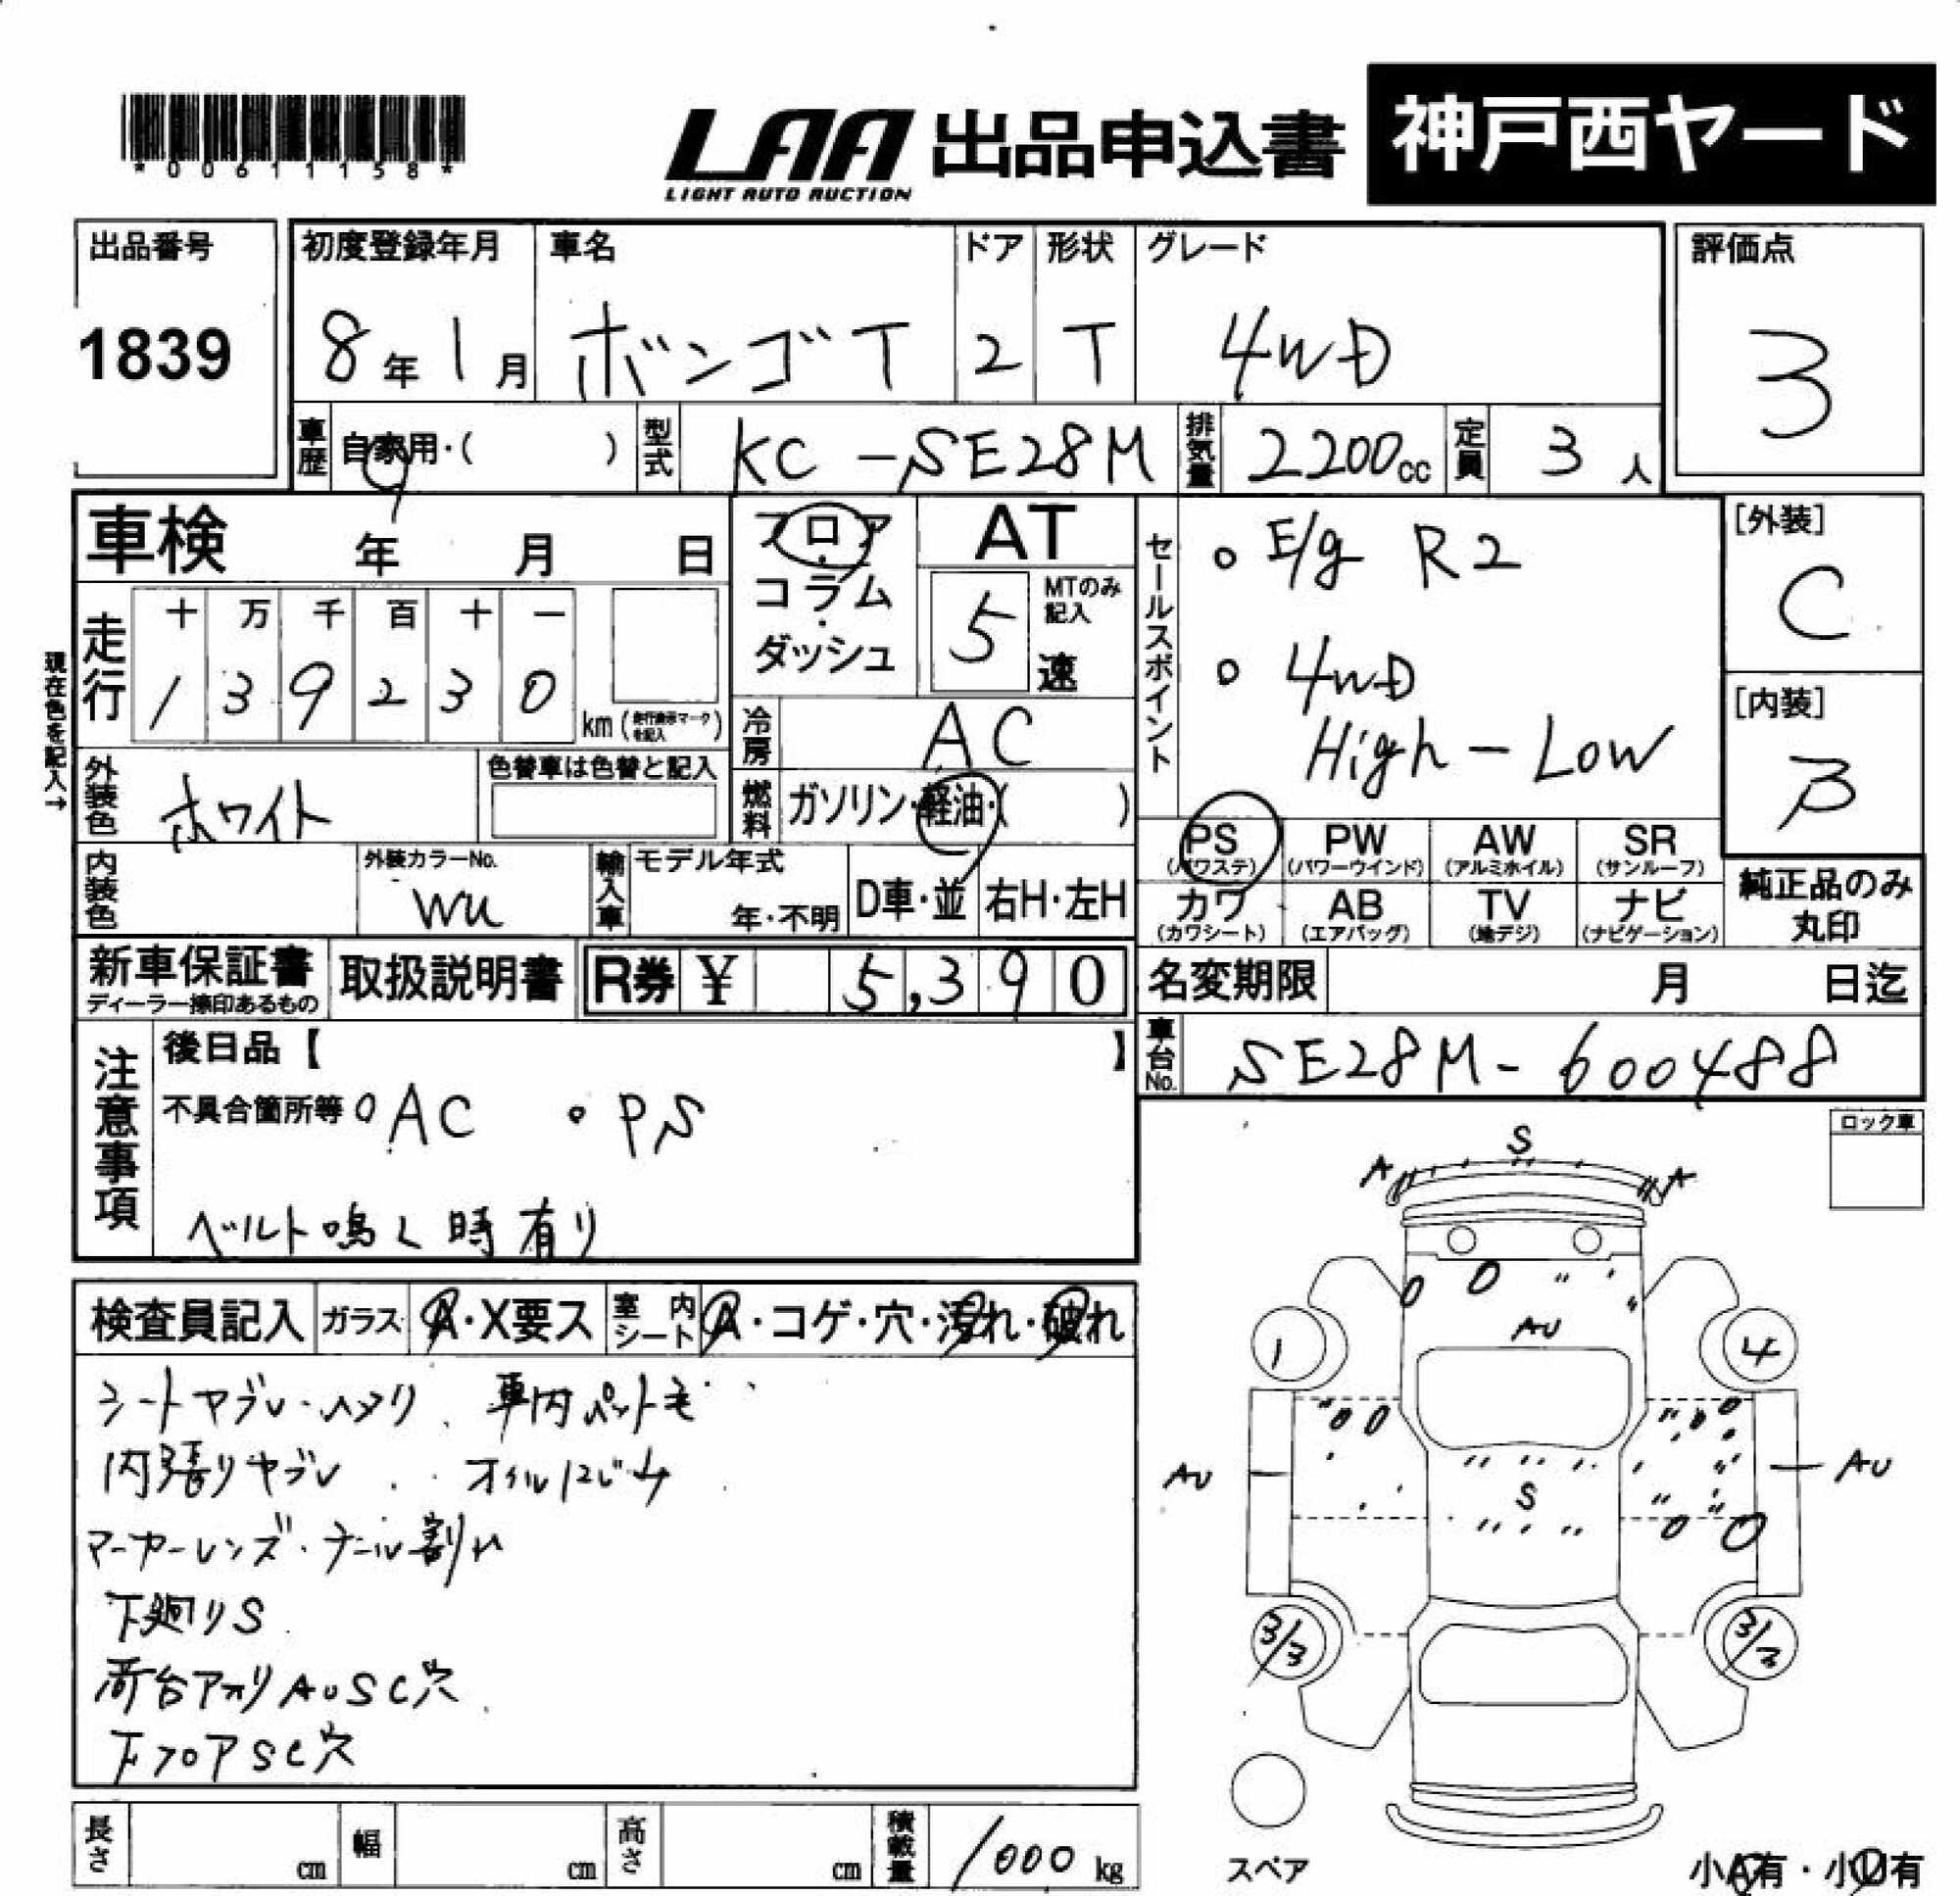 *00611158*
LAA 出品申込書 神戸西ヤード
LIGHT AUTO AUCTION
出品番号 1839
初度登録年月 8年1月
車名 ボンゴT
ドア 2
形状 T
グレード 4WD
評価点 3
車歴 自家用・( )
型式 KC-SE28M
排気量 2200cc
定員 3人
車検 年 月 日
フロア・コラム・ダッシュ
AT
5速 MTのみ記入
セールスポイント
○E/g R2
○4WD
High-Low
[外装] C
[内装] B
現在色を記入→
走行 十 万 千 百 十 一
1 3 9 2 3 0 km (走行表示マークを記入)
冷房 AC
外装色 ホワイト
色替車は色替と記入
燃料 ガソリン・軽油・( )
PS (パワステ) PW (パワーウインド) AW (アルミホイル) SR (サンルーフ)
カワ (カワシート) AB (エアバッグ) TV (地デジ) ナビ (ナビゲーション)
純正品のみ丸印
内装色
外装カラーNo. WU
輸入車 モデル年式 年・不明 D車・並 右H・左H
新車保証書 ディーラー捺印あるもの
取扱説明書
R券 ¥ 5,390
名変期限 月 日迄
車台No. SE28M-600488
注意事項
後日品【 】
不具合箇所等 ○AC ○PS
ベルト鳴く時有り
ロック車
検査員記入 ガラス A・X要ス 室内シート A・コゲ・穴・汚れ・破れ
シートヤブレ・ヘタリ 車内ペット毛
内張りヤブレ オイルにじみ
マーカーレンズ・テール割れ
下廻りS
荷台アオリAUSC穴
下フロアSC穴
S
A A
AU
1 4
AU AU
S
3/3 3/3
スペア
小A有・小U有
長さ cm 幅 cm 高さ cm 積載量 1000kg